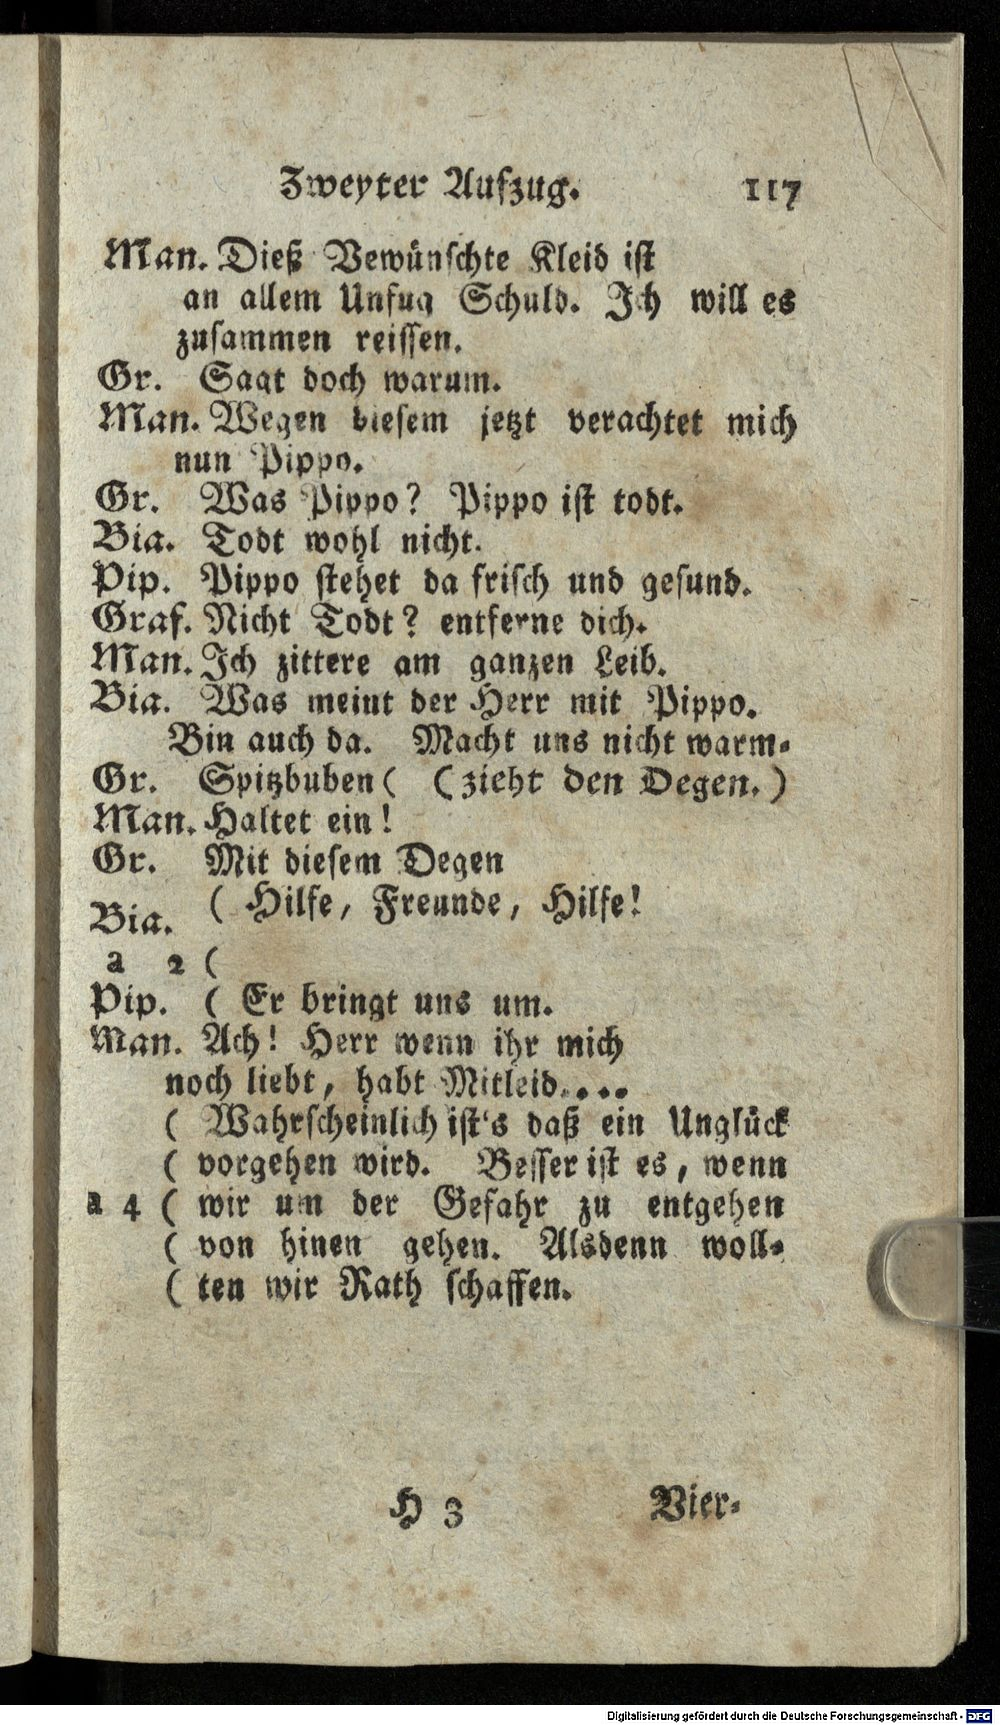 Zweyter Aufzug. 117
Man. Dieß Vewünschte Kleid ist
an allem Unfug Schuld. Ich will es
zusammen reissen.
Gr. Sagt doch warum.
Man. Wegen diesem jetzt verachtet mich
nun Pippo.
Gr. Was Pippo? Pippo ist todt.
Bia. Todt wohl nicht.
Pip. Pippo stehet da frisch und gesund.
Graf. Nicht Todt? entferne dich.
Man. Ich zittere am ganzen Leib.
Bia. Was meint der Herr mit Pippo.
Bin auch da. Macht uns nicht warm-
Gr. Spitzbuben ( (zieht den Degen.)
Man. Haltet ein!
Gr. Mit diesem Degen
Bia. ( Hilfe, Freunde, Hilfe!
a 2 (
Pip. ( Er bringt uns um.
Man. Ach! Herr wenn ihr mich
noch liebt, habt Mitleid....
( Wahrscheinlich ist's daß ein Unglück
( vorgehen wird. Besser ist es, wenn
a 4 ( wir um der Gefahr zu entgehen
( von hinen gehen. Alsdenn woll-
( ten wir Rath schaffen.
H 3 Vier-
Digitalisierung gefördert durch die Deutsche Forschungsgemeinschaft - DFG